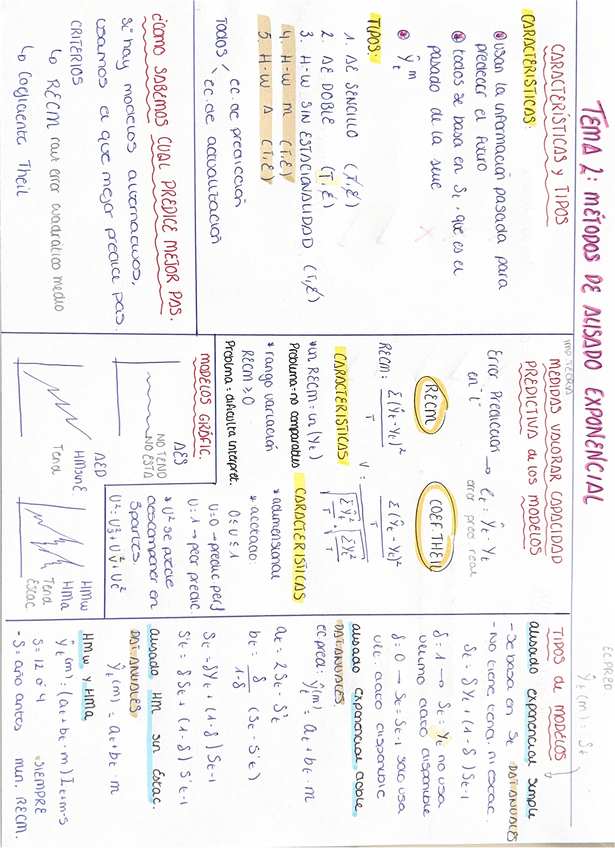 TEMA 2: MÉTODOS DE ALISADO EXPONENCIAL
CARACTERÍSTICAS Y TIPOS
CARACTERISTICAS:
usan la información pasada para
predecir el futuro
todos se basa en St, que es el
pasado de la serie
Ŷt m
TIPOS:
1. AE SENCILLO (T,E)
2. AE DOBLE (T,E)
3. H-W SIN ESTACIONALIDAD (T,E)
4. H-W M (T,E)
5. H-W A (T,E)
TODOS
ec. de predicción
ec. de actualización
¿CÓMO SABEMOS CUAL PREDICE MEJOR PAS.
si hay modelos alternativos,
usamos el que mejor predice pas.
CRITERIOS
↳ RECM raut error cuadrático medio
↳ Coeficiente Theil
IMP. TEORIA
MEDIDAS VALORAR CAPACIDAD
PREDICTIVA de los MODELOS
Error Predicción → et = Ŷt - Yt
en "t" error pred real
RECM
COEF THEIL
RECM: Σ(Ŷt-Yt)²
T
U = √Σ(Ŷt - Yt)²
T
√ΣŶt² + √ΣYt²
T T
CARACTERISTICAS
* un RECM = un (Yt)
Problema: no comparativa
* rango variación
RECM ≥ 0
Problema: dificulta interpret.
CARACTERISTICAS
* adimensional
* acotado:
0 ≤ U ≤ 1
U=0 → predic. perf
U=1 → peor predic.
* U² se puede
descomponer en
3 partes
MODELOS GRÁFIC.
AES
NO TEND
NO ESTA
AED
HMsinE
Tend
HMW
HMa
Tend
Estac
EC PRED
Ŷt (m) = St
TIPOS de MODELOS
alisado exponencial simple
- Se basa en St DAT. ANUALES
- No tiene tend. ni estac.
St = δYt + (1-δ) St-1
δ=1 → St = Yt no usa
ultimo dato disponible
δ=0 → St = St-1 solo usa
ult. dato disponible
alisado exponencial doble.
DAT. ANUALES.
ec pred: Ŷt(m) = at + bt · m
at = 2St - S't
bt = δ (St - S't)
1-δ
St = δYt + (1-δ) St-1
S't = δSt + (1-δ) S't-1
alisado HM sin Estac.
DAT. ANUALES
Ŷt(m) = at + bt · m
HMW y HMA
Ŷt(m) = (at + bt · m) It+m-s
S = 12 ó 4 SIEMPRE
- S = año antes mun. RECM.